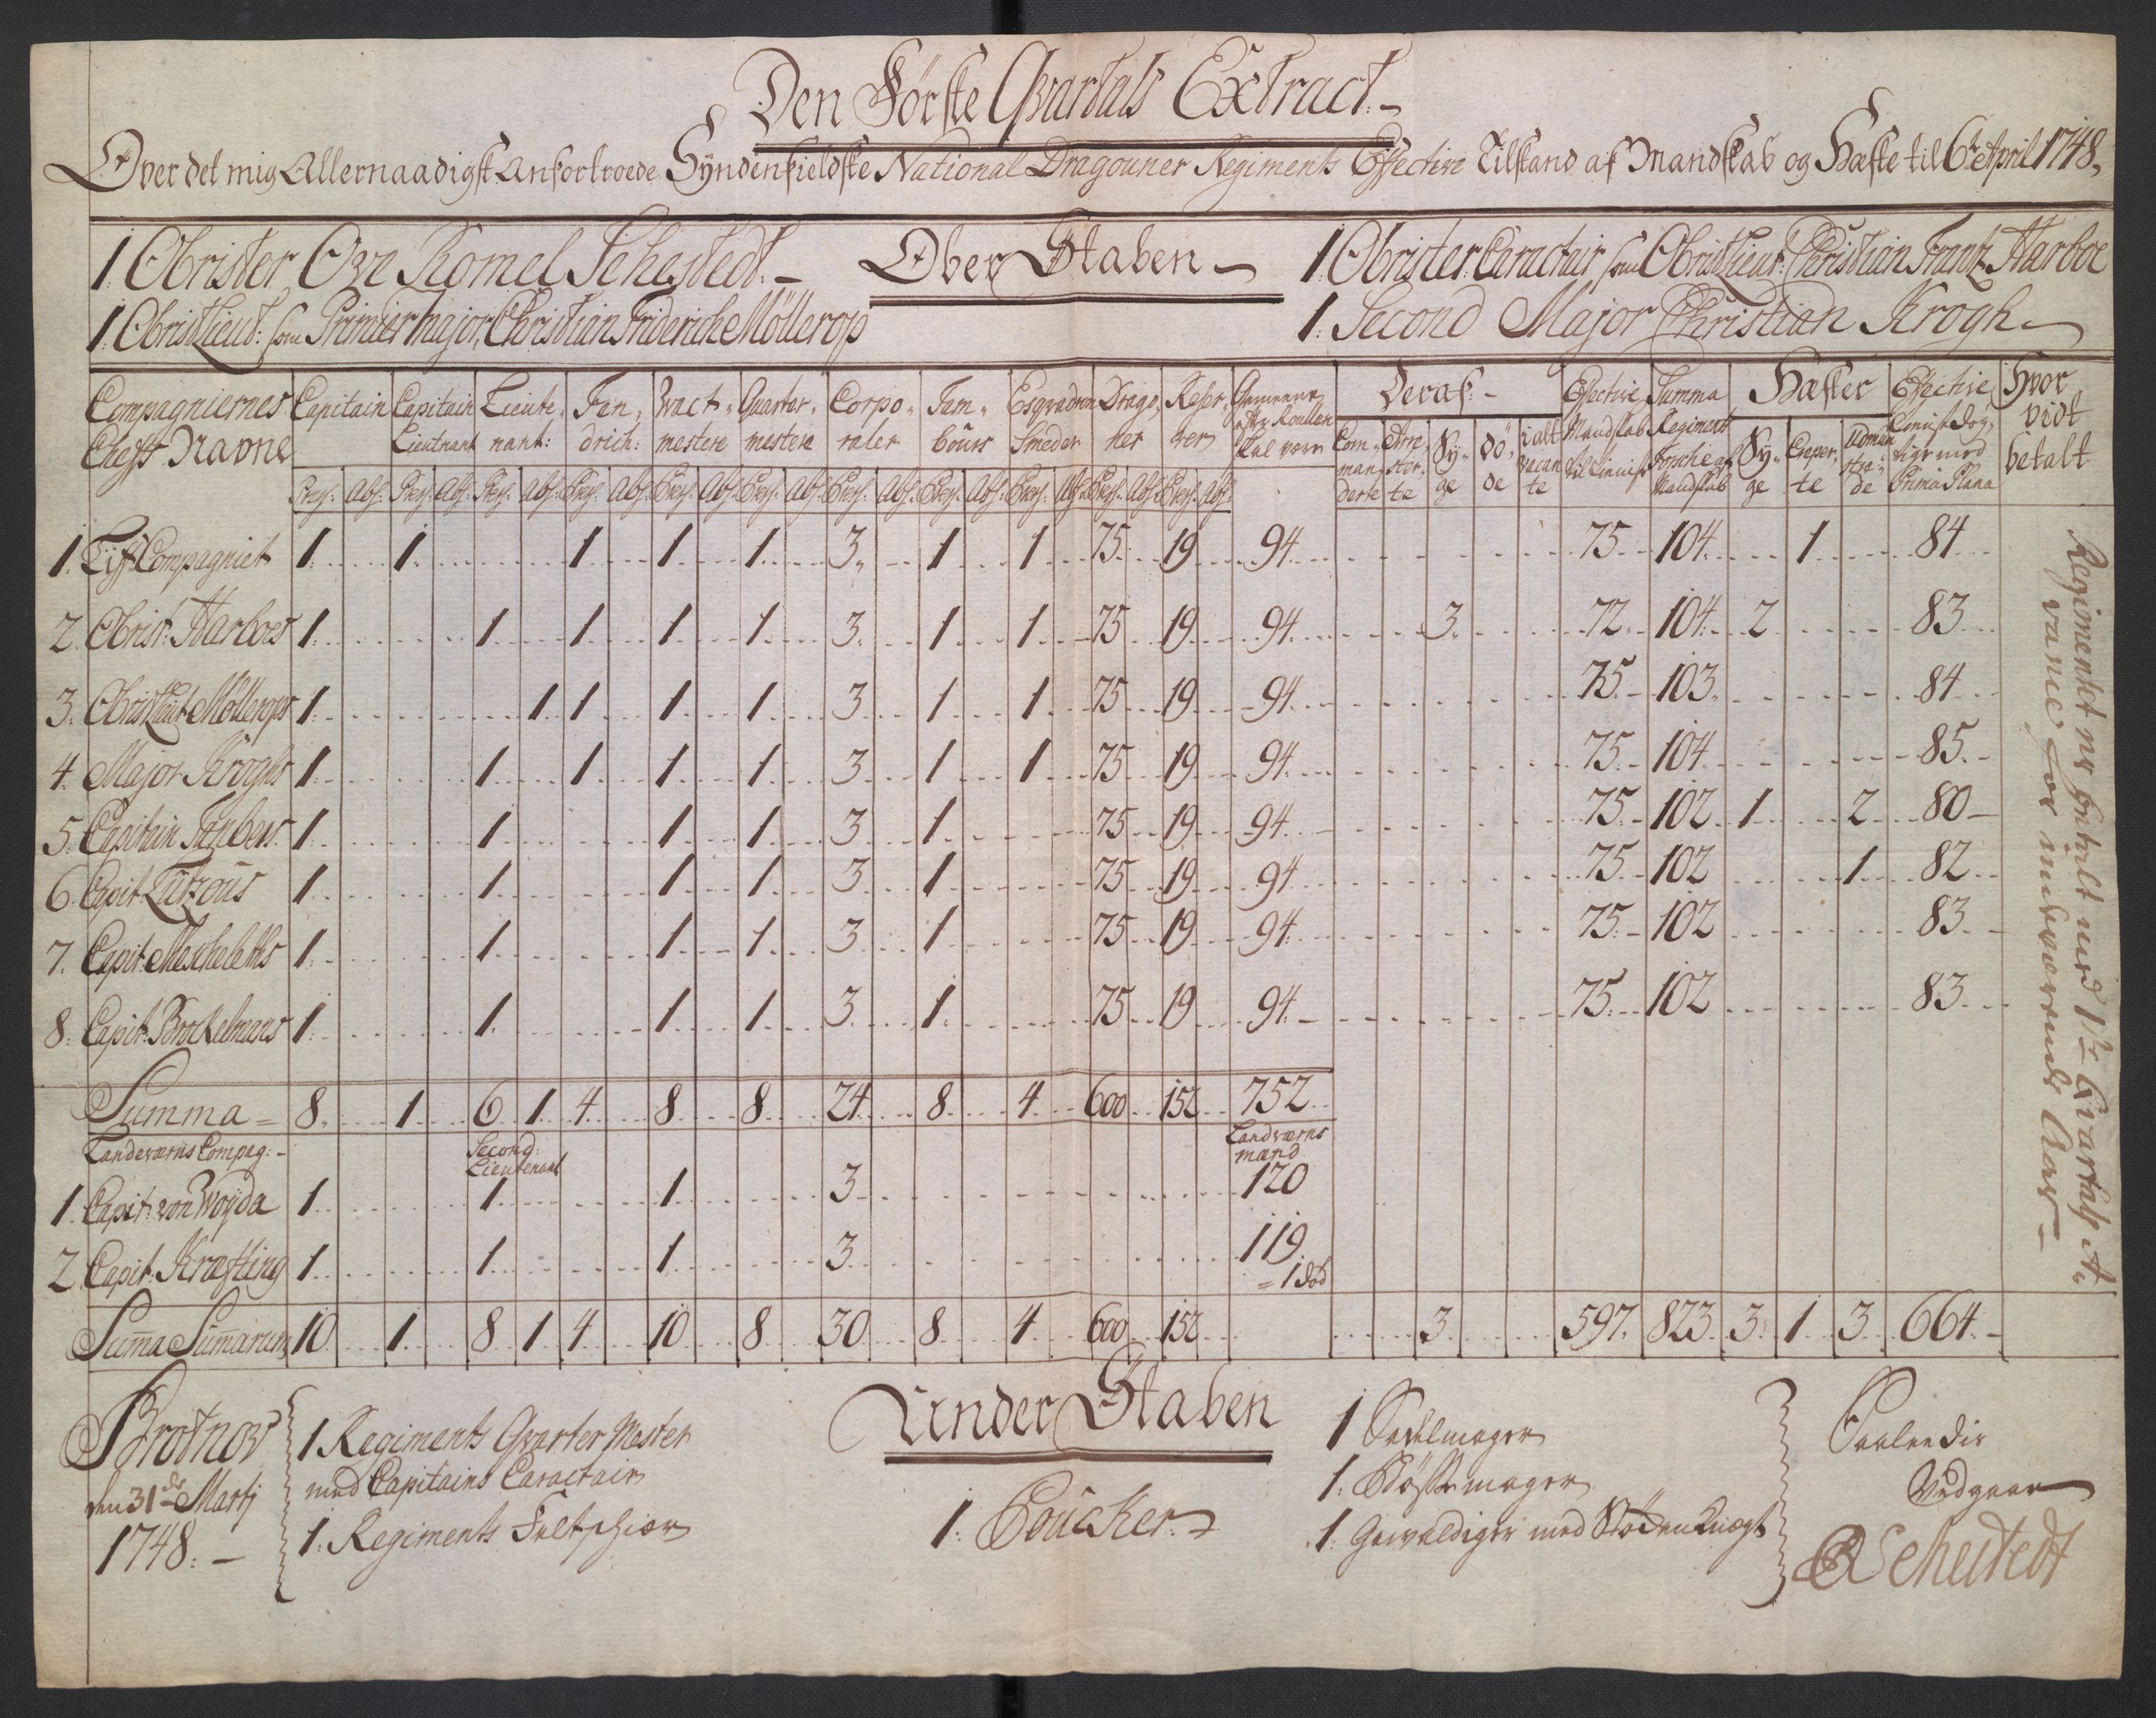 Den Förste Qvartals Extract.-
Over det mig Allernaadigst Anfortroede Syndenfieldske National Dragouner Regiments Effective Tilstand af Mandskab og Hæste til 6te April 1748.
1. Obrister Ove Romel Sehestedt. -
Ober Staben -
1 Obrister Caractair som Obristlieut: Christian Frantz Harboe
1. Obristlieut: som Primier Major, Christian Friderich Möllerop
1. Second Major Christian Krogh -
Compagniernes Cheffs Navne
Capitain
Capitain Lieutnant
Lieutenant:
Fendrich:
Wactmestere
Quartermestere
Corporaler
Tambours
Esqvadron Smeder
Dragoner
Reserver
Gemeene efter Roullen skal være
Deraf: -
Commanderte
Arresterte
Syge
döde
i alt vacante
Effective Mandskab til Tieniste
Summa Regiments Mandskab
Hæster
Syge
Creperte
Udmunstrede
Effective Tienistdögtige med Prima Plana
Hvor vidt betalt
Pres: Abs: Pres: Abs: Pres: Abs: Pres: Abs: Pres: Abs: Pres: Abs: Pres: Abs: Pres: Abs: Pres: Abs: Pres: Abs: Pres: Abs:
1. Liff Compagniet 1 1 1 1 1 3 1 1 75 19 94 75 104 1 84
2. Obrist: Harboes 1 1 1 1 1 3 1 1 75 19 94 3 72 104 2 83
3. Obristlieut Möllerops 1 1 1 1 1 3 1 1 75 19 94 75 103 84
4. Major Kroghs 1 1 1 1 1 3 1 1 75 19 94 75 104 85
5. Capitain 1 1 1 1 3 1 75 19 94 75 102 1 2 80
6. Capit: Lützous 1 1 1 1 3 1 75 19 94 75 102 1 82
7. Capit: Mecheleths 1 1 1 1 3 1 75 19 94 75 102 83
8. Capit: Brockelmans 1 1 1 1 3 1 75 19 94 75 102 83
Summa = 8 1 6 1 4 8 8 24 8 4 600 152 752
Landeværns Compag: -
Second: Lieutenant
Landværns mænd
1. Capit: von Woyda 1 1 1 3 120
2. Capit: Kræfting 1 1 1 3 119
= 1 död
Suma Sumarum 10 1 8 1 4 10 8 30 8 4 600 152 3 597 823 3 1 3 664
Regimentet er betalt med 1te Qvartals A-
vance for indeværende Aar -
Under Staben
Brotnov
den 31de Martj
1748. -
1 Regiments Qvarter Mester
med Capitains Caractair
1. Regiments Feltskiær
1. Poucker.
1 Sadelmager
1. Bössemager
1. Gewaldiger med Stöckenknegt
Saaledis
Vedgaar
OR Sehestedt